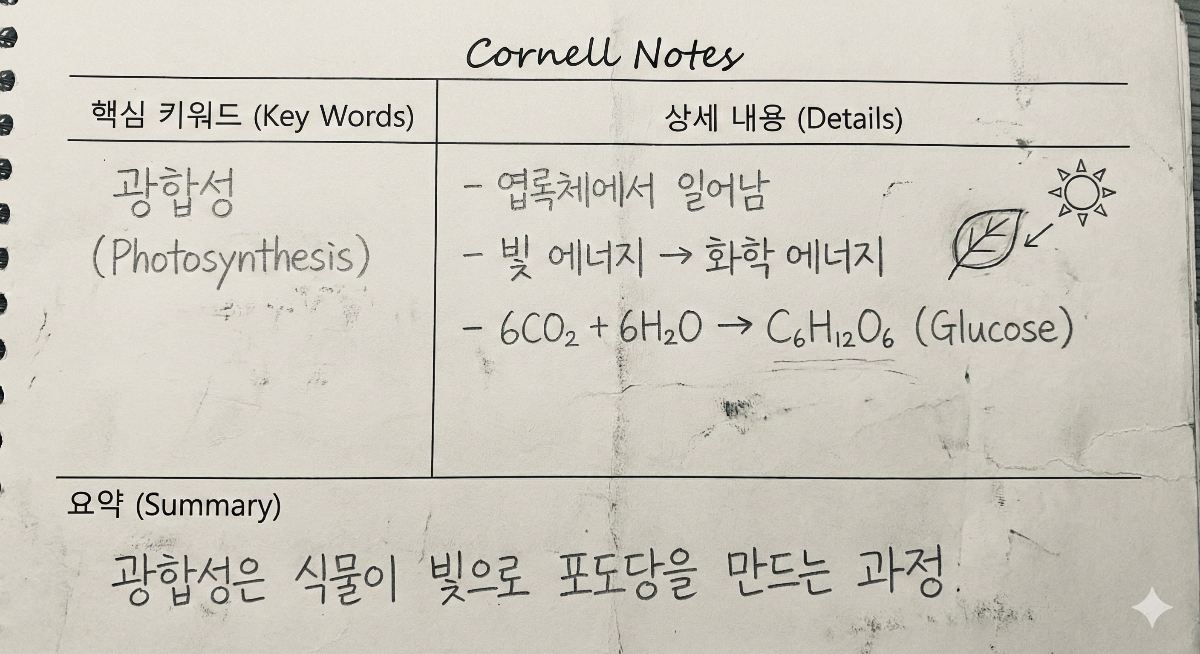 Cornell Notes
핵심 키워드 (Key Words)
상세 내용 (Details)
광합성
(Photosynthesis)
- 엽록체에서 일어남
- 빛 에너지 → 화학 에너지
- 6CO₂ + 6H₂O → C₆H₁₂O₆ (Glucose)
요약 (Summary)
광합성은 식물이 빛으로 포도당을 만드는 과정.